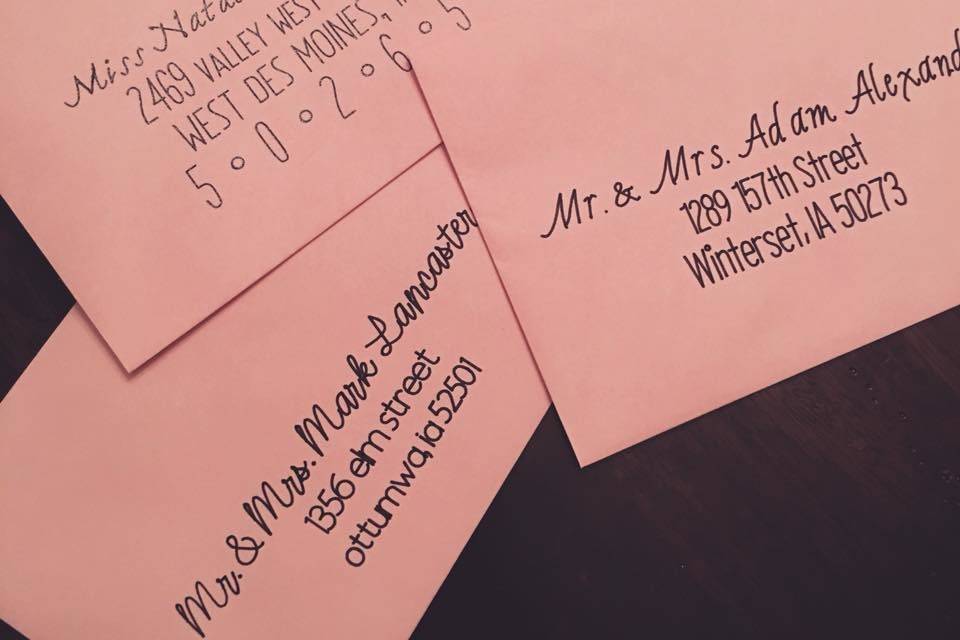 Miss
2469 VALLEY WEST
WEST DES MOINES,
5 ∘ 0 ∘ 2 ∘ 6 ∘ 5
Mr. & Mrs. Adam
1289 157th Street
Winterset, IA 50273
Mr. & Mrs. Mark Lancaster
1356 elm street
ottumwa, ia 52501